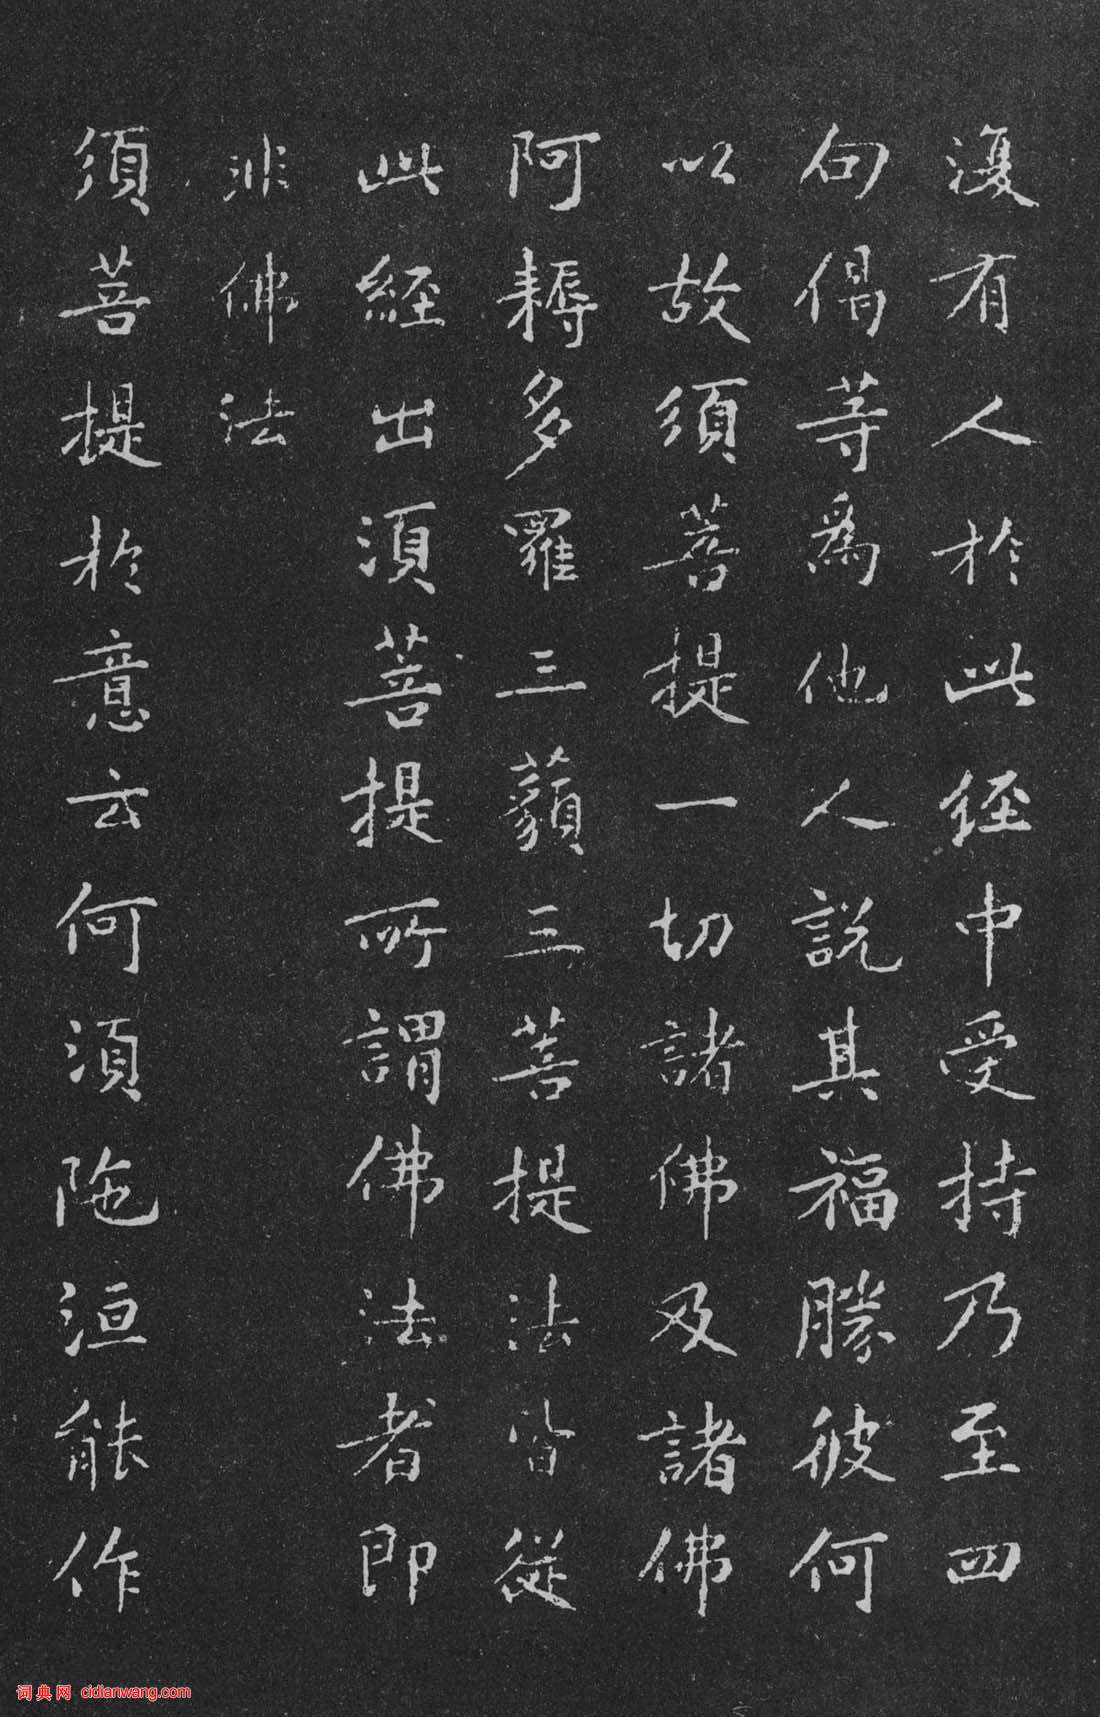 復有人於此經中受持乃至四
句偈等為他人說其福勝彼何
以故須菩提一切諸佛及諸佛
阿耨多羅三藐三菩提法皆從
此經出須菩提所謂佛法者即
非佛法
須菩提於意云何須陁洹能作
词典网 cidianwang.com